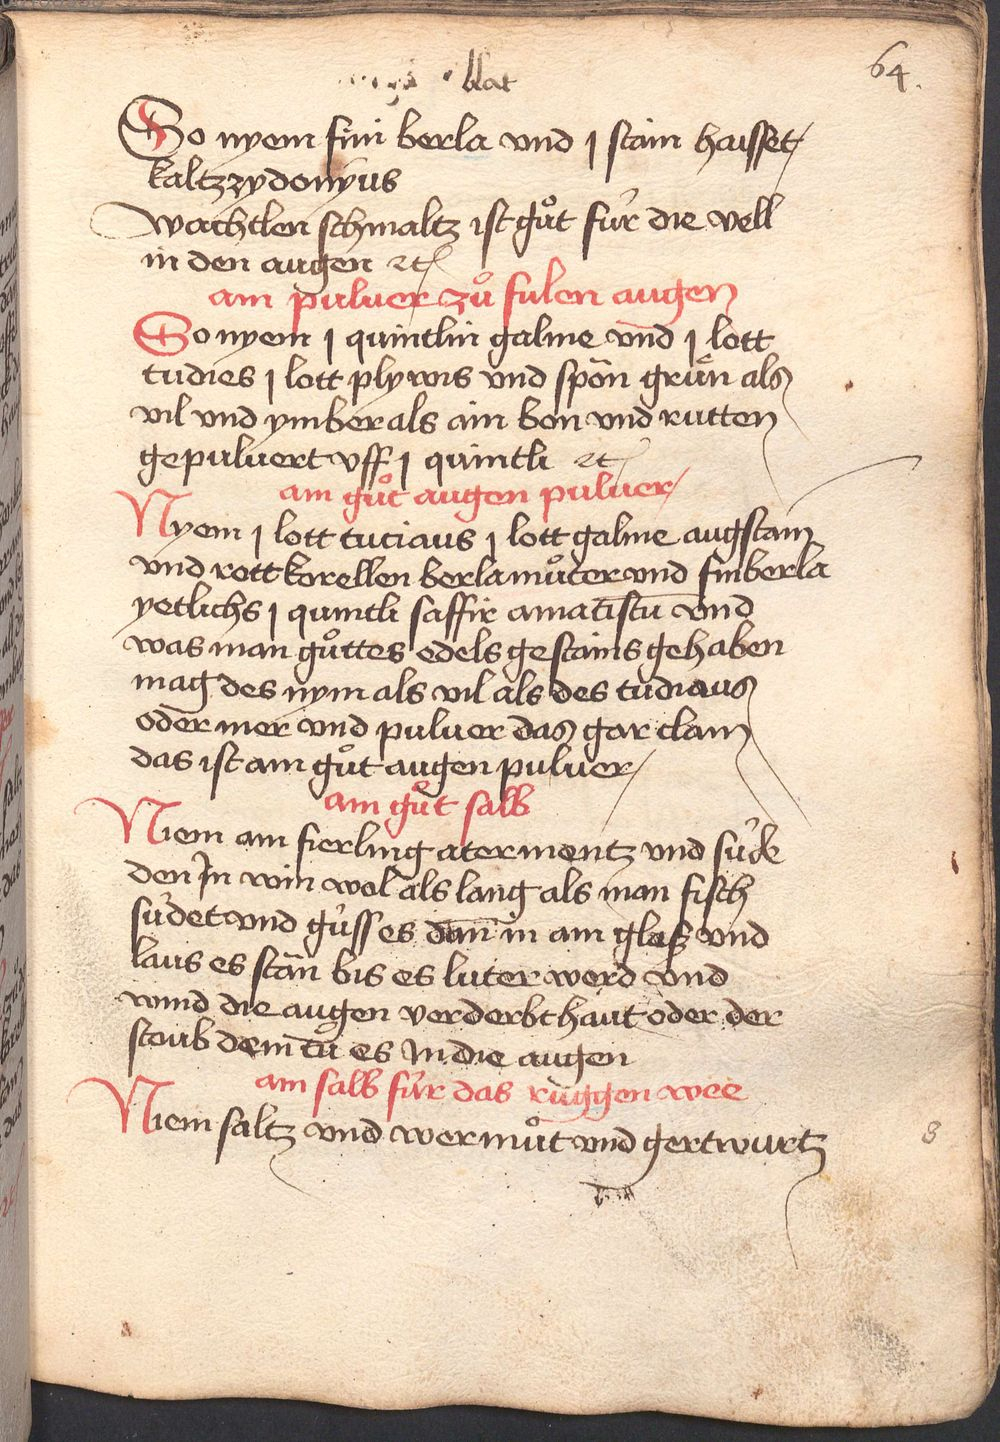 blat
64.
So nyem fin berla vnd j stain haisset
kaltzzydonyus
wachtlen schmaltz ist gůt für die vell
in den augen ⁊c
ain puluer zů fulen augen
So nyem j quintlin galme vnd j lott
tudies j lott plywis vnd spōn grůn als
vil vnd ymber als ain bon vnd rutten
gepuluert vff j quintli ⁊c
ain gůt augen puluer
Nyem j lott tuciaus j lott galme augstain
vnd rott korellen berlamůter vnd fin berla
yetlichs j quintli saffir amatistū vnd
was man gůttes edels gestains gehaben
mag des nym als vil als des tudiaus
oder mer vnd puluer das gar clain
das ist ain gůt augen puluer
ain gůt salb
Niem ain fierling atermentz vnd süde
den In win wol als lang als man fisch
südet vnd güss es dān in ain glaß vnd
laus es stān bis es luter werd vnd
wind die augen verderbt haut oder der
stoub dem tů es In die augen
ain salb für das ruggen wee
Niem saltz vnd wermůt vnd gertwurtz
8